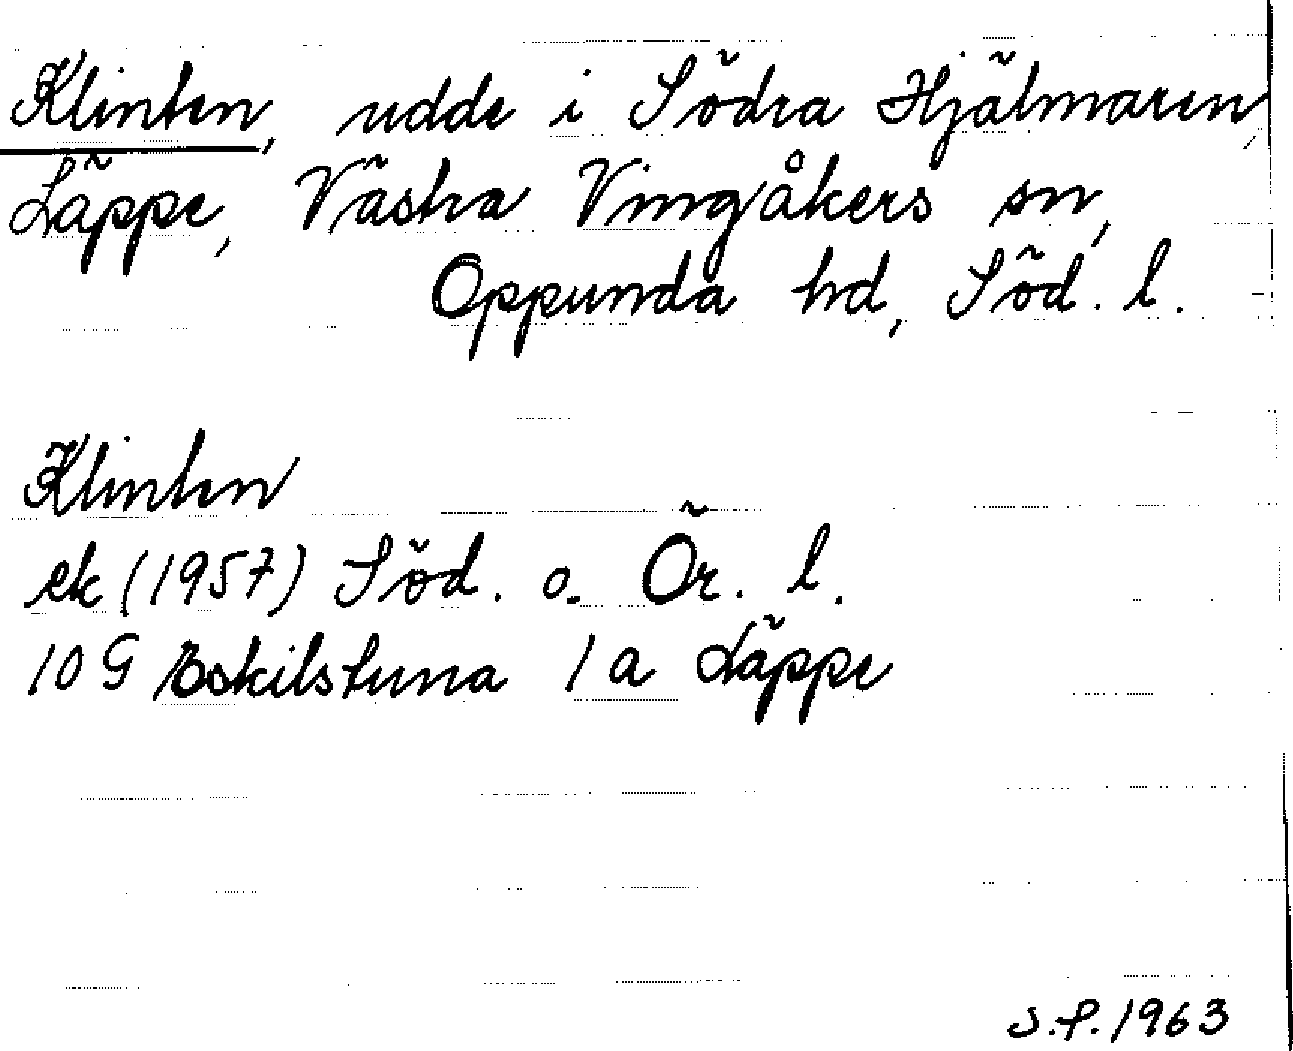 Klinten, udde i Södra Hjälmaren,
Läppe, Västra Vingåkers sn,
Oppunda hd, Söd. l.
Klinten
ek (1957) Söd. o. Ör. l.
10 G Eskilstuna 1 a Läppe
S.P. 1963